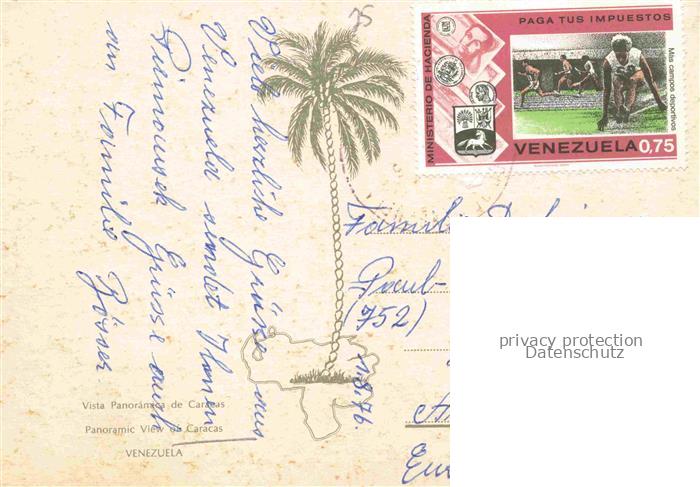 75
PAGA TUS IMPUESTOS
MINISTERIO DE HACIENDA
Más campos deportivos
VENEZUELA 0,75
Viele herzliche Grüsse aus
Venezuela sendet Ihnen
Grüsse auch
an Familie
Familie
Paul-
(752)
1.8.76.
Vista Panorámica de Caracas
Panoramic View of Caracas
VENEZUELA
privacy protection
Datenschutz